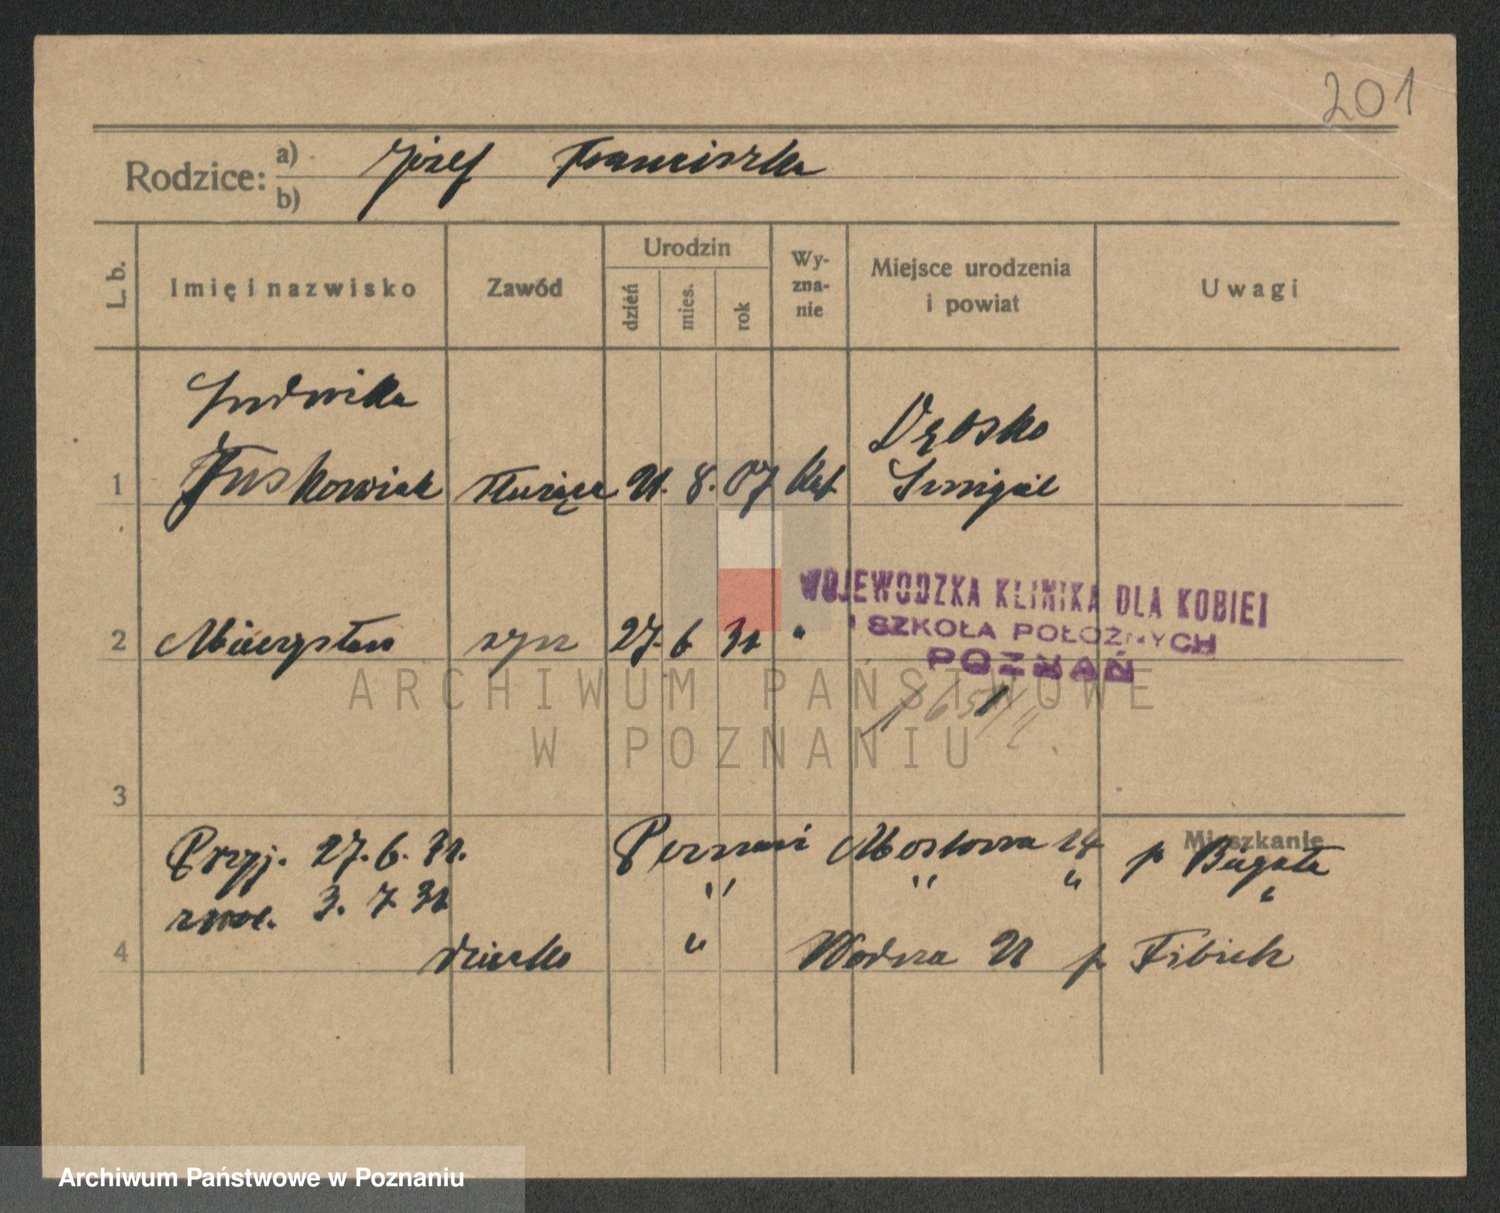 201
Rodzice: a) Józef Franciszka
b)
L. b.
Imię i nazwisko
Zawód
Urodzin
dzień
mies.
rok
Wy-
zna-
nie
Miejsce urodzenia
i powiat
Uwagi
Ludwika
Dębsko
1 Juskowiak służąca 21. 8. 07 kat Śmigiel
WOJEWÓDZKA KLINIKA DLA KOBIET
I SZKOŁA POŁOŻNYCH
POZNAŃ
2 Mieczysław syn 27. 6 31 "
ARCHIWUM PAŃSTWOWE
W POZNANIU
3
Mieszkanie
Przyj. 27. 6. 31. Poznań Mostowa 14 p Bugała
zwol. 3. 7 31 " " " "
4 dziecko " Wodna 21 p Fibich
Archiwum Państwowe w Poznaniu